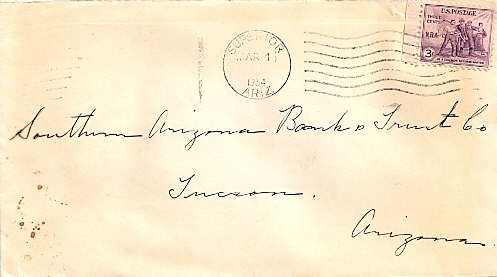 SUPERIOR
MAR 11
1934
ARIZ.
U.S. POSTAGE
THREE
CENTS
NRA
3¢
Southern Arizona Bank & Trust Co
Tucson.
Arizona.